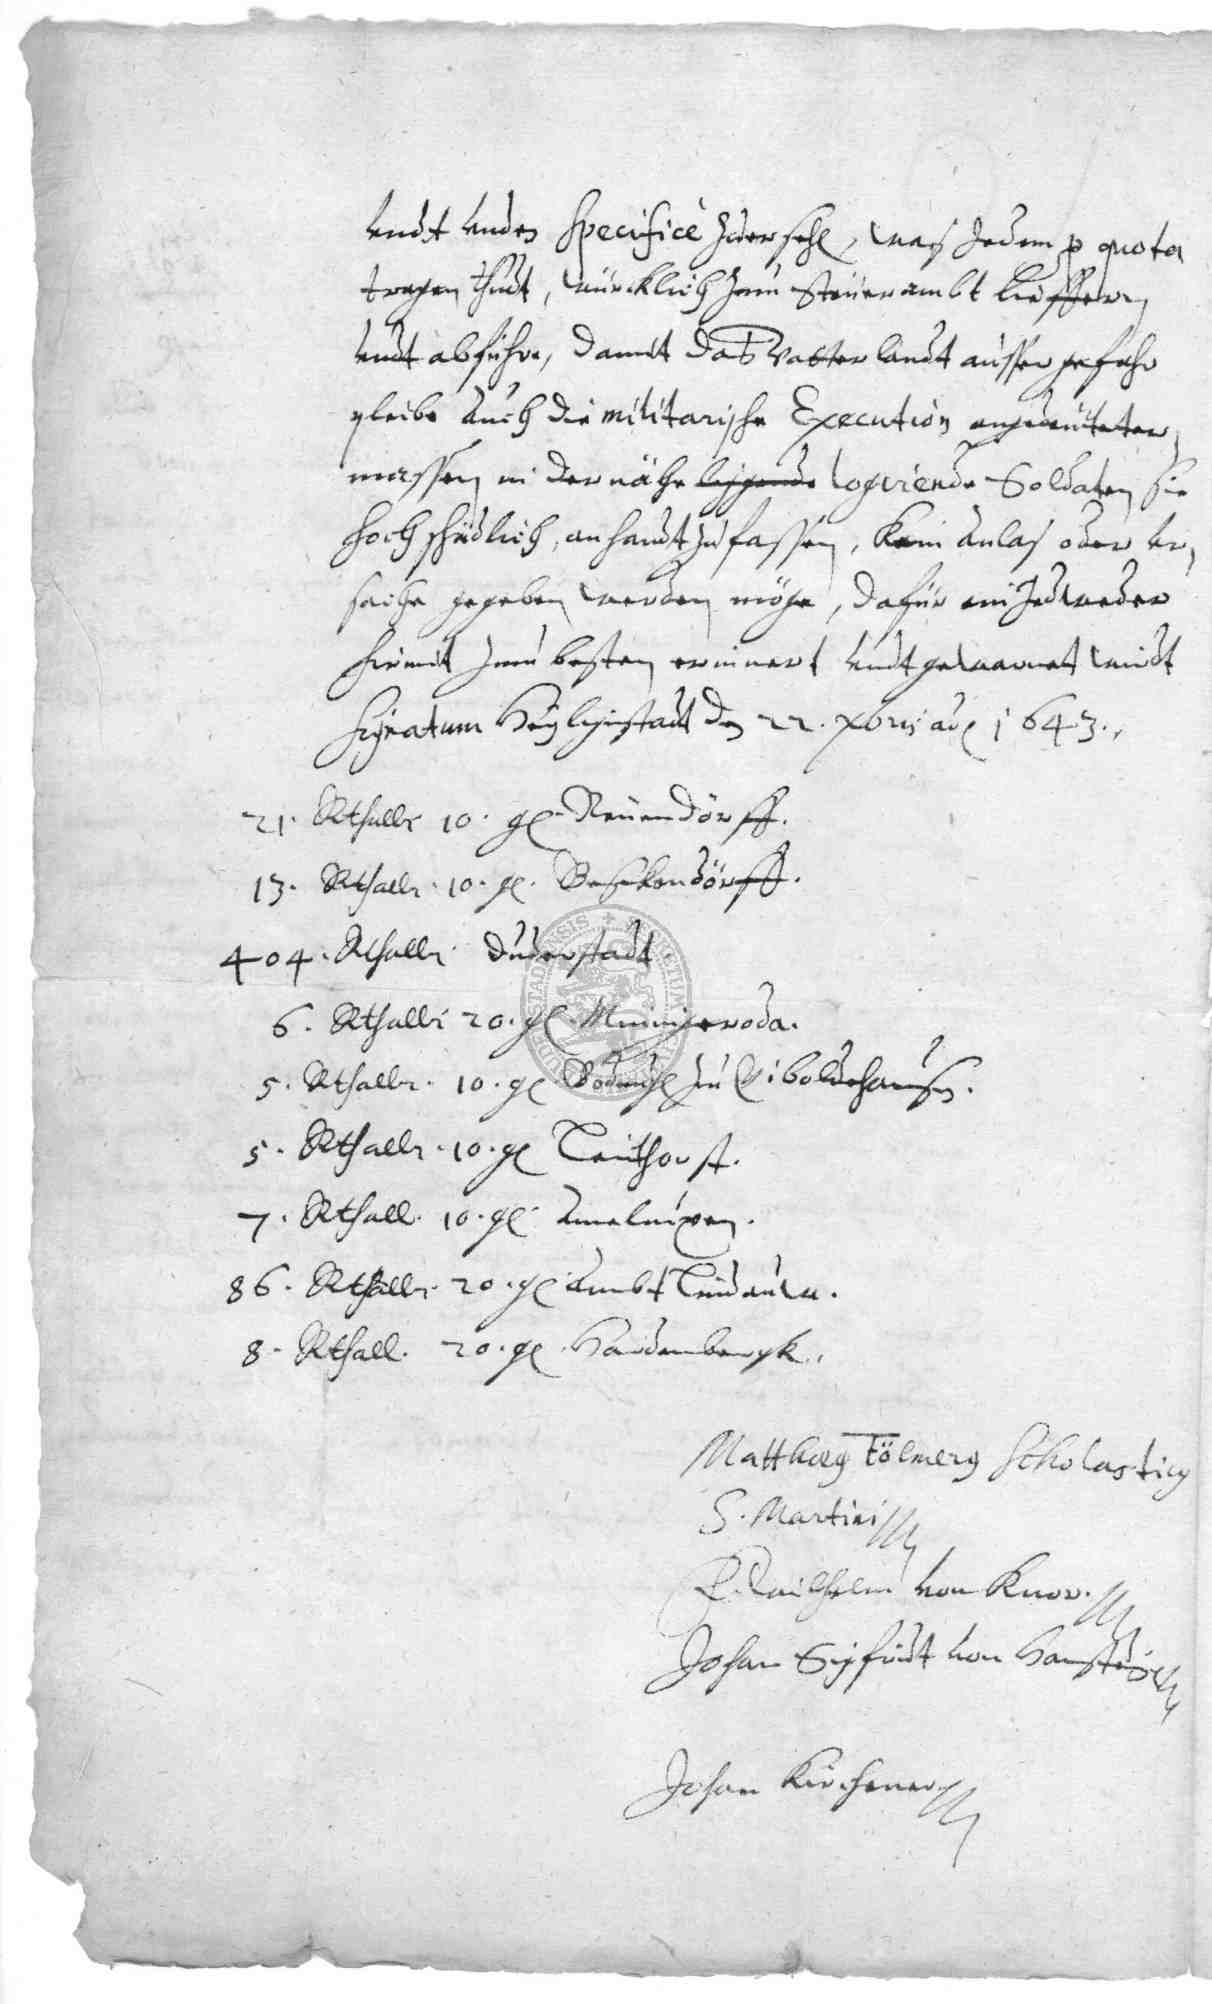 undt unden Specificè zuersehe, was Jedem p quota
tragen thudt, würcklich zum Steüerambt lieffern
undt abführe, damit das Vatterlandt ausser gefahr
pleibe auch die militarische Execution angedeüteter
massen in der nähe liggende logirende Soldaten sie
hoch schädlich, an handt zu fassen, kein anlas oder ur,
sache gegeben werden möge, dafür ein Jedweder
hirmit zum besten erinnert undt gewarnet wirdt
Signatum Heyligenstadt den 22. xbris ao 1643.,
21. Rthallr 10. gl. Neuendörff.
13. Rthallr. 10. gl. Besekendörff.
404. Rthallr Duderstadt.
6. Rthallr 20. gl. Minnigeroda.
5. Rthallr. 10. gl. zu Giboldehausen.
5. Rthallr. 10. gl Teüthorst.
7. Rthall. 10. gl. Amelunxen.
86. Rthallr. 20. gl Ambt Lindauw.
8. Rthall. 20. gl. Hardenbergk.,
Matthaeus Tölmerus Scholasticus
S. Martini
Wilhelm von Knor.
Johan Sigfridt von Hanstein
Johan Kirchener